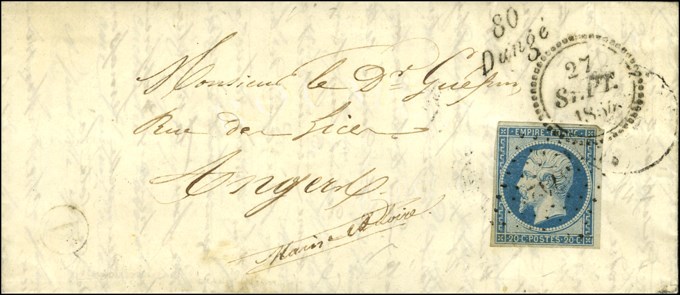 80
Dangé
27
SEPT.
1854
Monsieur le Dr Guépin
Rue des Lices
Angers
Maine et Loire
EMPIRE FRANC.
20 C. POSTES 20 C.